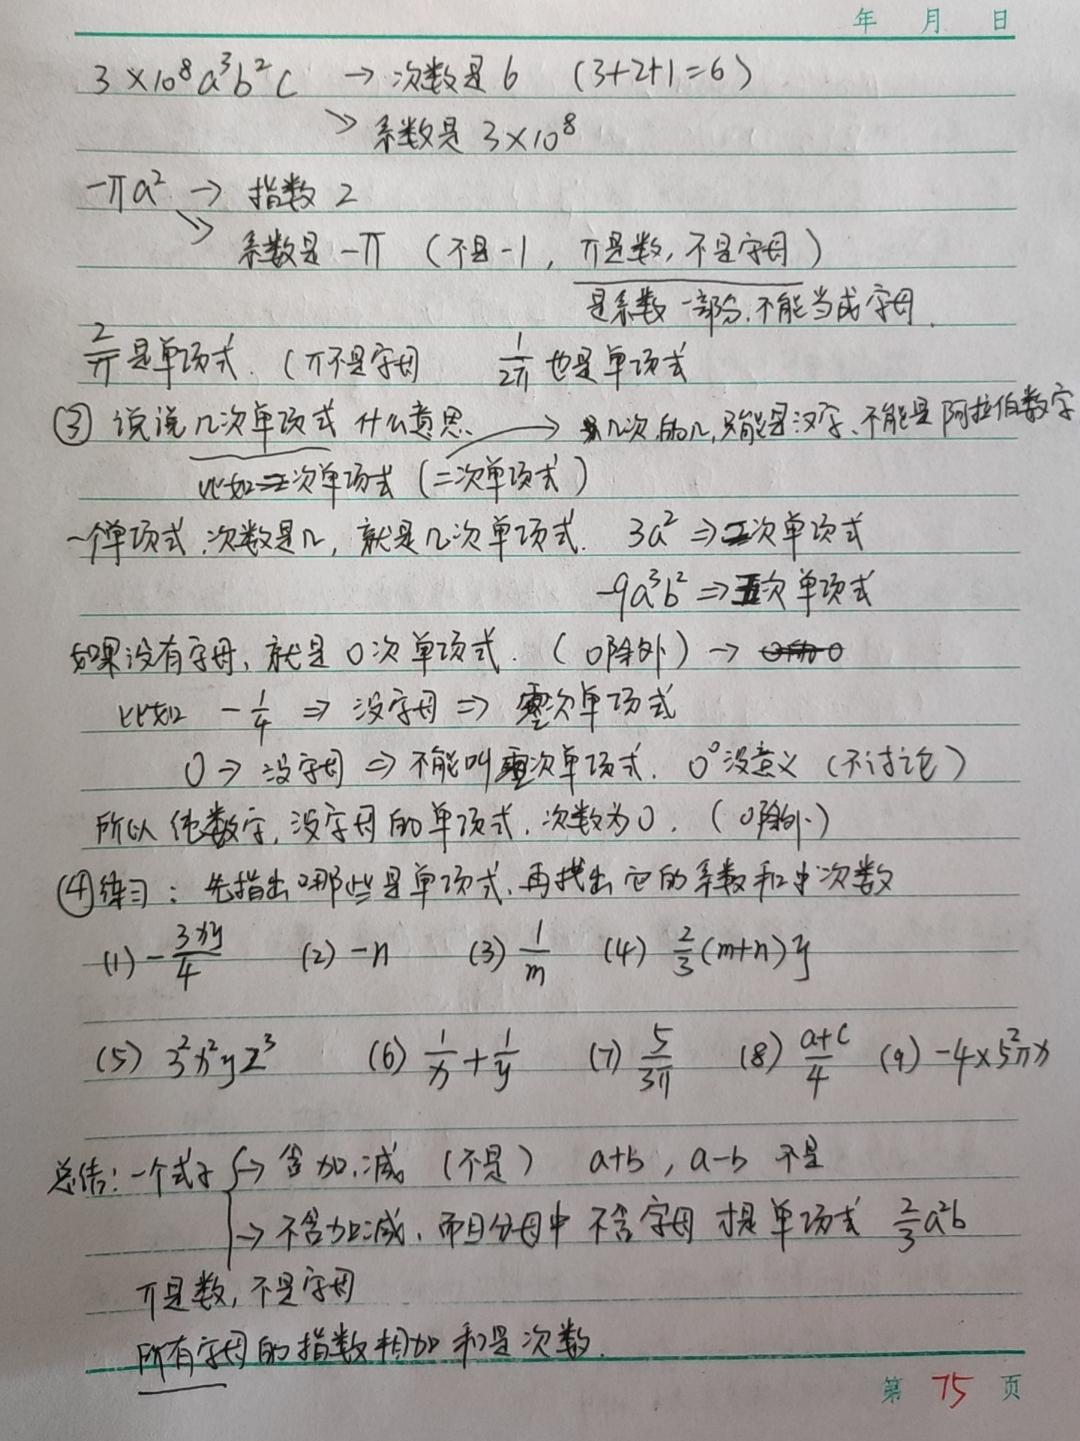 年 月 日
3×10⁸a³b²c → 次数是6 (3+2+1=6)
→ 系数是 3×10⁸
-πa² → 指数 2
→ 系数是 -π (不是-1, π是数, 不是字母)
是系数一部分, 不能当成字母.
2/π 是单项式. (π不是字母 1/2π 也是单项式
③ 说说几次单项式什么意思. → 几次的几, 只能是汉字、不能是阿拉伯数字
比如二次单项式 (二次单项式)
一个单项式, 次数是几, 就是几次单项式. 3a² ⇒ 二次单项式
-9a³b² ⇒ 五次单项式
如果没有字母, 就是0次单项式. (0除外) →
比如 -1/4 ⇒ 没字母 ⇒ 零次单项式
0 → 没字母 ⇒ 不能叫零次单项式. 0⁰没意义 (不讨论)
所以 纯数字, 没字母的单项式, 次数为0. (0除外)
④ 练习: 先指出哪些是单项式, 再找出它的系数和次数
(1) -3xy/4 (2) -n (3) 1/m (4) 2/3(m+n)y
(5) 3²x²yz³ (6) 1/x+1/y (7) 5/3π (8) a+c/4 (9) -4×5²πx
总结: 一个式子 → 含加、减 (不是) a+b, a-b 不是
→ 不含加减, 而且分母中不含字母 才是单项式 2/3a²b
π是数, 不是字母
所有字母的指数相加和是次数.
第 75 页